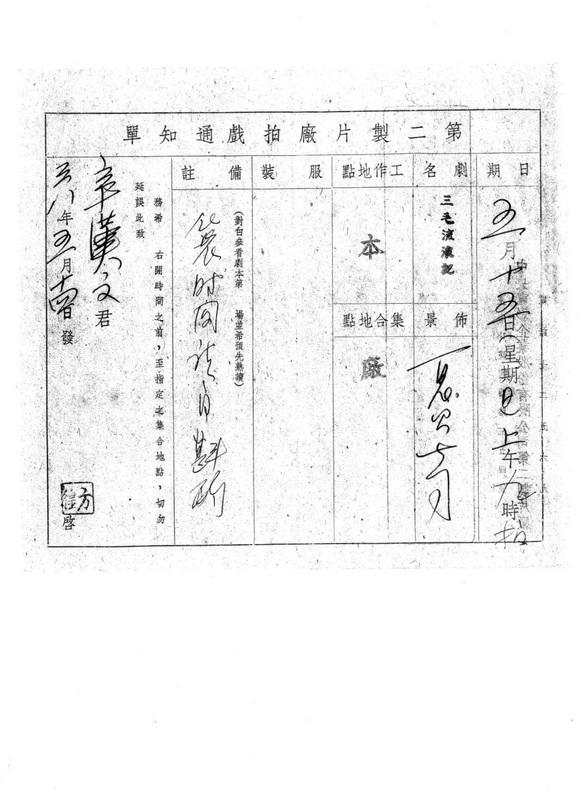 第二製片廠拍戲通知單
日期
五月十五日(星期日)上午九時
劇名
三毛流浪記
佈景
公司
工作地點
本
集合地點
廠
服裝
備註
(對白參看劇本第 場並希預先熟讀)
化裝時間請自斟酌
務希 右開時間之前,至指定之集合地點,切勿
延誤此致
章漢文君
年五月 日發
方
啓